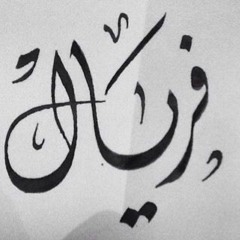 فريال